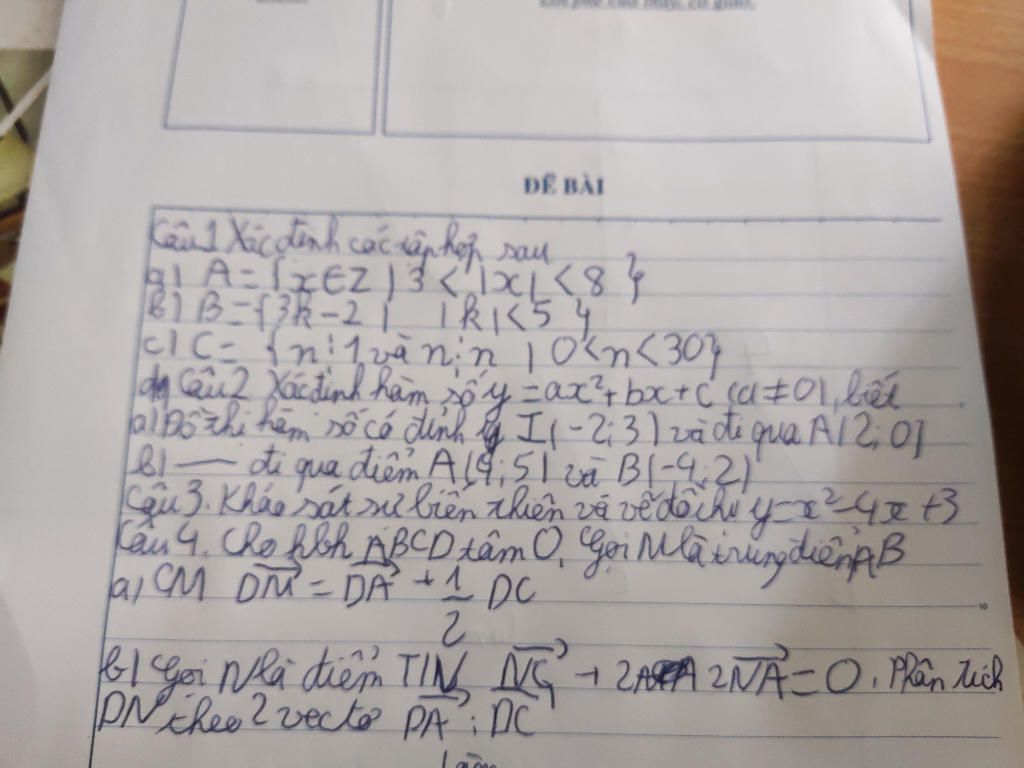 ĐỀ BÀI
Câu 1 Xác định các tập hợp sau
a) A = {x ∈ Z | 3 < |x| < 8 }
b) B = {3k - 2 | |k| < 5 }
c) C = {n ⋮ 1 và n ⋮ n | 0 < n < 30}
Câu 2 Xác định hàm số y = ax² + bx + c (a ≠ 0), biết
a) Đồ thị hàm số có đỉnh I(-2; 3) và đi qua A(2; 0)
b) — đi qua điểm A(4; 5) và B(-4; 2)
Câu 3. Khảo sát sự biến thiên và vẽ đồ thị y = x² - 4x + 3
Câu 4. Cho hbh ABCD tâm O, Gọi M là trung điểm AB
a) CM DM⃗ = DA⃗ + 1/2 DC
b) Gọi N là điểm T/N NC⃗ + 2NA⃗ = 0. Phân tích
DN theo 2 vectơ DA⃗ ; DC⃗